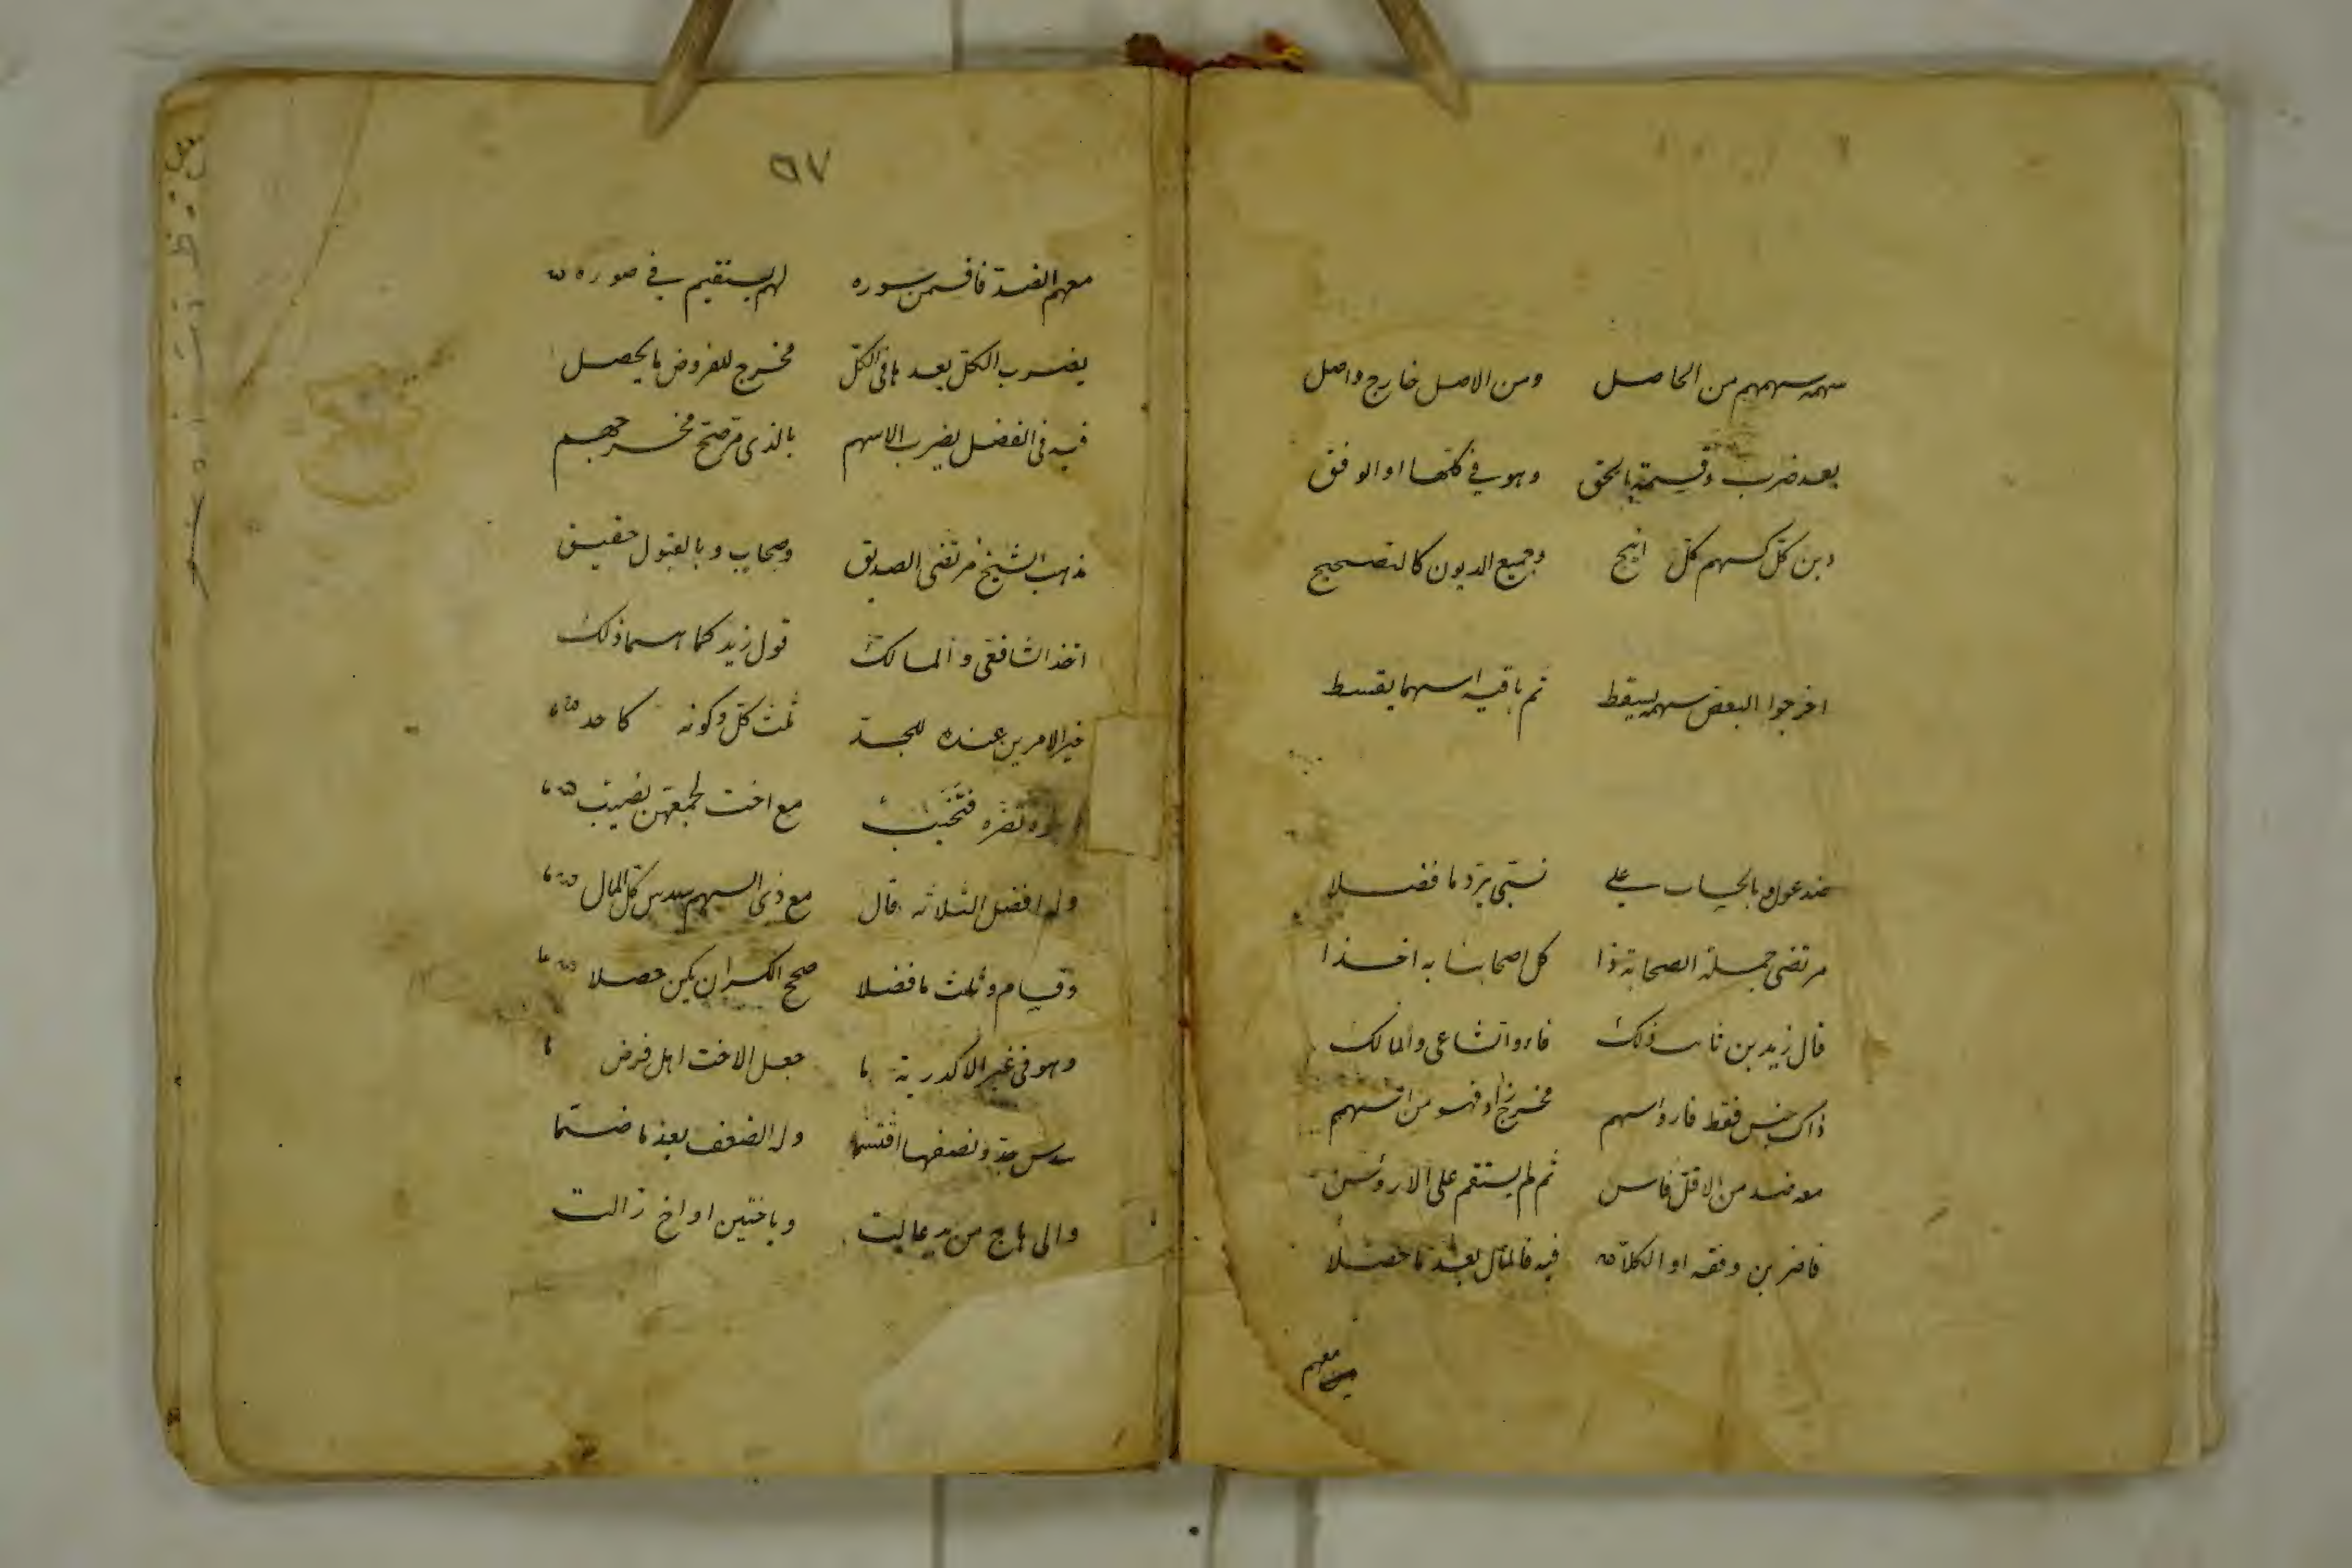 سهمه سهمهم من الحاصل ومن الاصل خارج واصل
بعد ضرب وقسمة بالحق وهو في كلها او الوفق
دين كل كسهم كل وجميع الديون كالتصحيح
اخرجوا البعض سهمه يسقط ثم باقيه اسهما يقسط
ضد عول وبالحساب على نسبتى يرد ما فضلا
مرتضى جملة الصحابة ذا كل اصحابنا به اخذا
قال زيد بن ثابت ذلك والمالك
ذاك جنس فقط فاروا سهم مخرج
معه ضد من الاقل فاس ثم لم يستقم على الارؤس
فاضربن وفقه او الكلا فيه فالمال بعد ما حصلا
معهم
٩٧
معهم لم يستقيم في صوره
يضرب الكل بعد ما في الكل مخرج للفروض ما يحصل
فيه في الفضل يضرب الاسهم بالذى مر صح مخرجهم
مذهب الشيخ مرتضى الصديق وصحاب وبالقبول حقيق
اخذ الشافعي والمالك قول زيد كما هما ذلك
خير الامرين عنده للجد ثلث كل وكونه كاحد
مع اخت لجمعهن نصيب
وله افضل الثلاثه قال مع ذى السهم سدس كل المال
وقيام وثلث ما فضلا صحح الكسر ان يكن حصلا
وهو في غير الاكدرية ما جعل الاخت اهل فرض
سدس جد ونصفها اقتسما وله الضعف بعد ما ضما
والى من عالت وباختين او اخ زالت